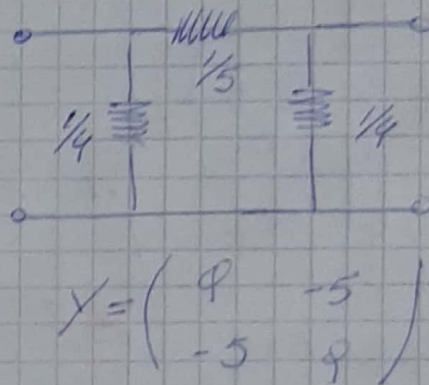 1/5
1/4 1/4
Y = ( 9 -5
-5 9 )